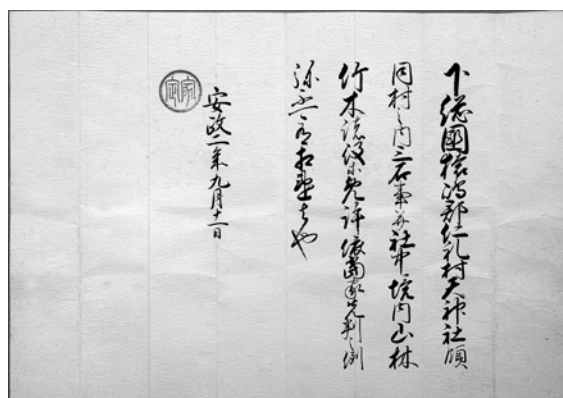 下総國猿嶋郡仁礼村天神社領
同村之内三石事并社中境内山林
竹木諸役等免許依當家先判之例
弥不可有相違者也
安政二年九月十一日
家定